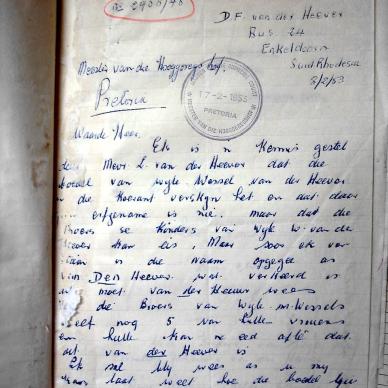 D.F. van der Heever
Bus. 24
Enkeldoorn
Suid Rhodesia
8/2/53
Meester van die Hooggeregshof.
Pretoria
17-2-1953
PRETORIA
Waarde Heer.
Ek is in Kennis gestel
deur Mevr L. van der Heever dat die
boedel van wyle Wessel van der Heever
in die Koerant verskyn het en dat daar
erfgename is nie, maar dat die
Broers se Kinders van Wyle W. van der
Heever kan eis, Meer soos ek ver
is die naam opgegee as
Den Heever wat verkeerd is
moet van der Heever wees
die Broers van wyle Wessels
leef nog 5 van hulle
en hulle kan n eed aflê dat
dit van der Heever is
Ek sal bly wees as u my
laat weet hoe die boedel